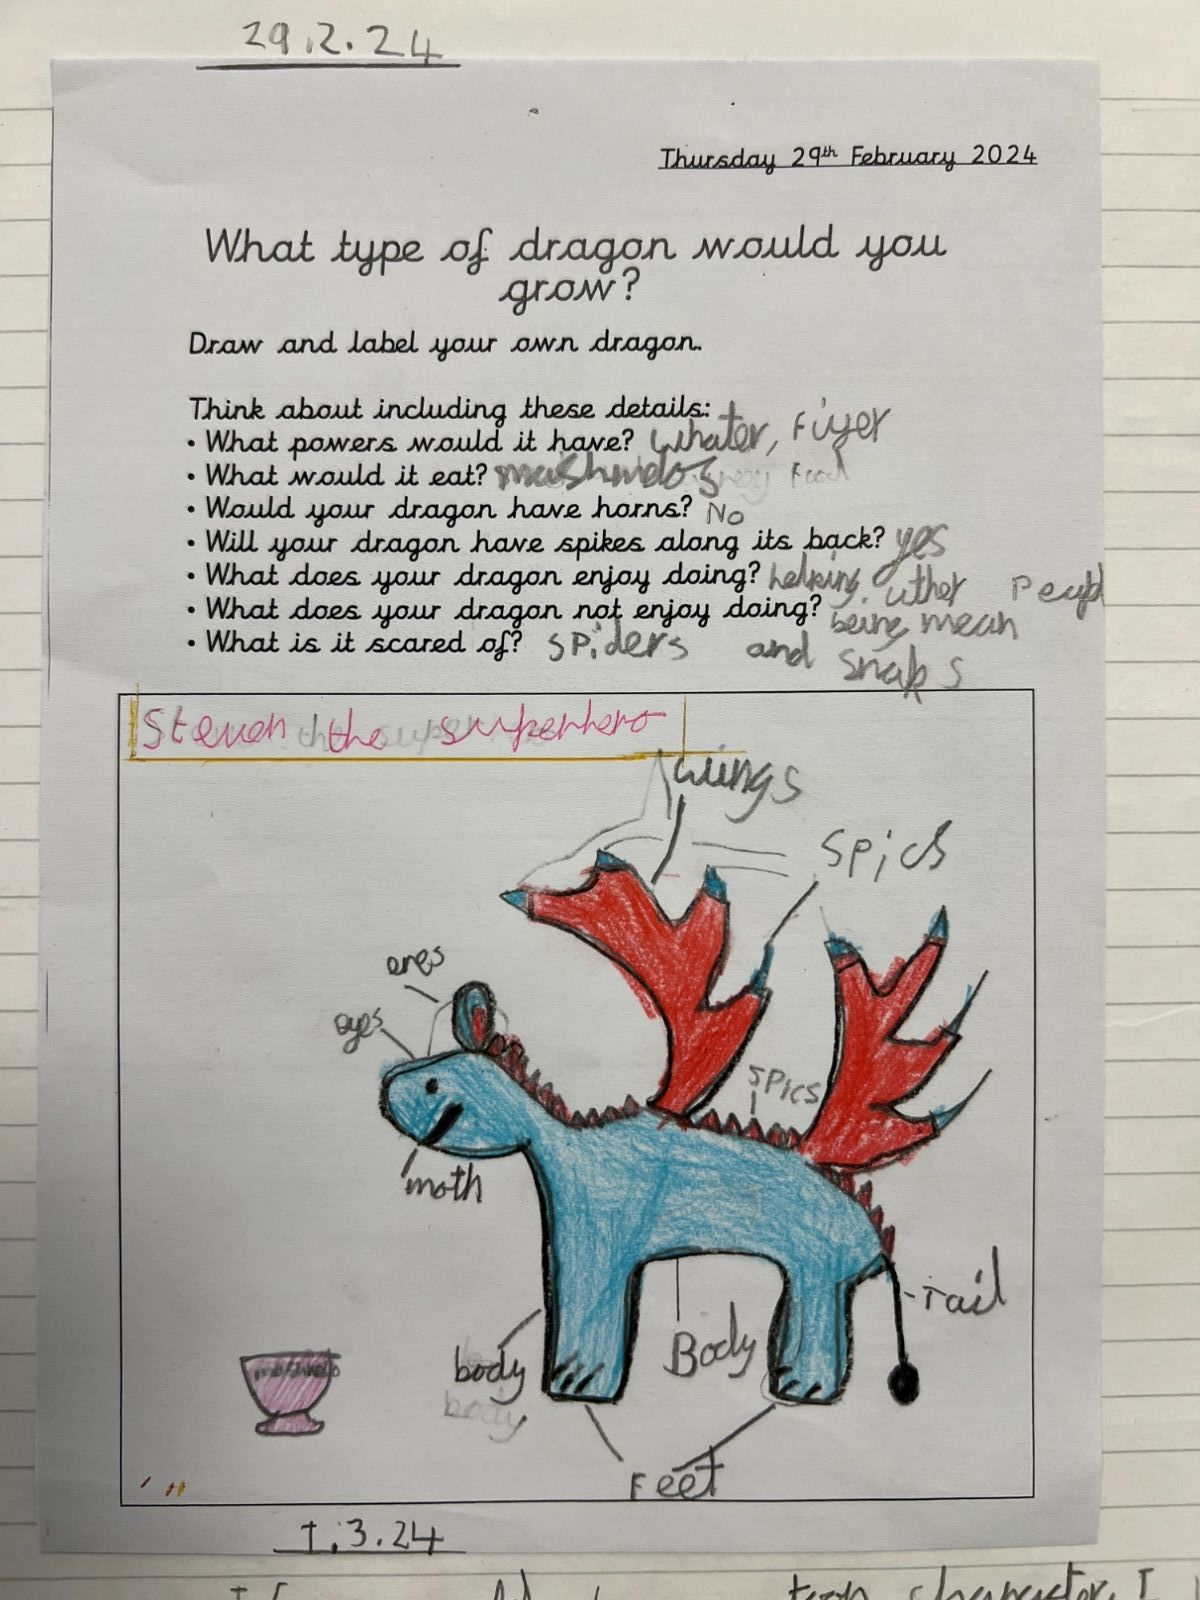 29.2.24
Thursday 29th February 2024
What type of dragon would you
grow?
Draw and label your own dragon.
Think about including these details:
• What powers would it have? Whater, Fiyer
• What would it eat? mashmelos Food
• Would your dragon have horns? No
• Will your dragon have spikes along its back? yes
• What does your dragon enjoy doing? helping uther peapl
• What does your dragon not enjoy doing? being mean
• What is it scared of? spiders and snaks
Steven the superhero
wings
spics
eres
eyes
spics
moth
Tail
body
Body
body
Feet
1.3.24
character, I